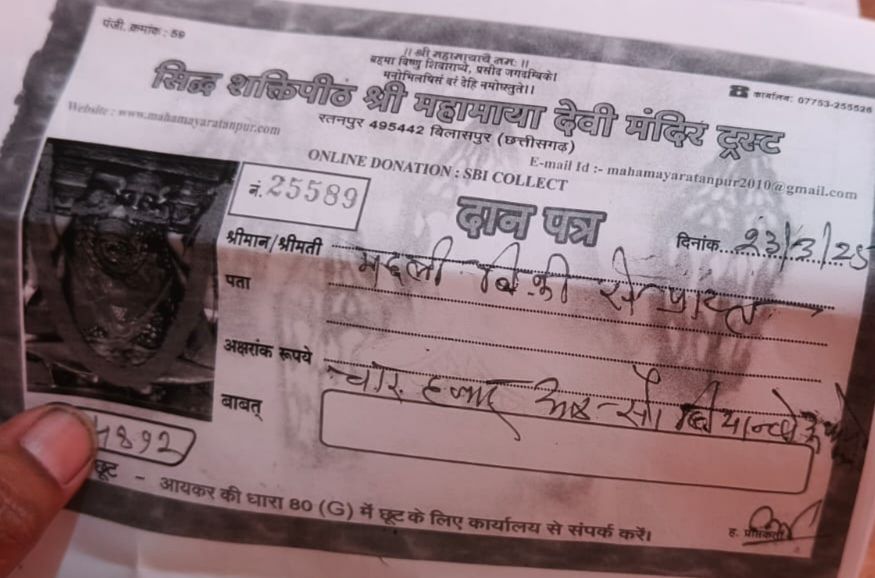 पंजी. क्रमांक : 59
|| श्री महामायायै नमः ||
ब्रह्मा विष्णु शिवाराध्ये, प्रसीद जगदम्बिके।
मनोभिलषितं वरं देहि नमोस्तुते।।
☎ कार्यालय: 07753-255526
सिद्ध शक्तिपीठ श्री महामाया देवी मंदिर ट्रस्ट
Website : www.mahamayaratanpur.com
रतनपुर 495442 बिलासपुर (छत्तीसगढ़)
E-mail Id :- mahamayaratanpur2010@gmail.com
ONLINE DONATION : SBI COLLECT
नं. 25589
दान पत्र
दिनांक 23/3/25
श्रीमान/श्रीमती मछली बिक्री से प्राप्त
पता
अक्षरांक रूपये चार हजार आठ सौ
बाबत्
4892
छूट - आयकर की धारा 80 (G) में छूट के लिए कार्यालय से संपर्क करें।
ह. प्राप्तकर्ता